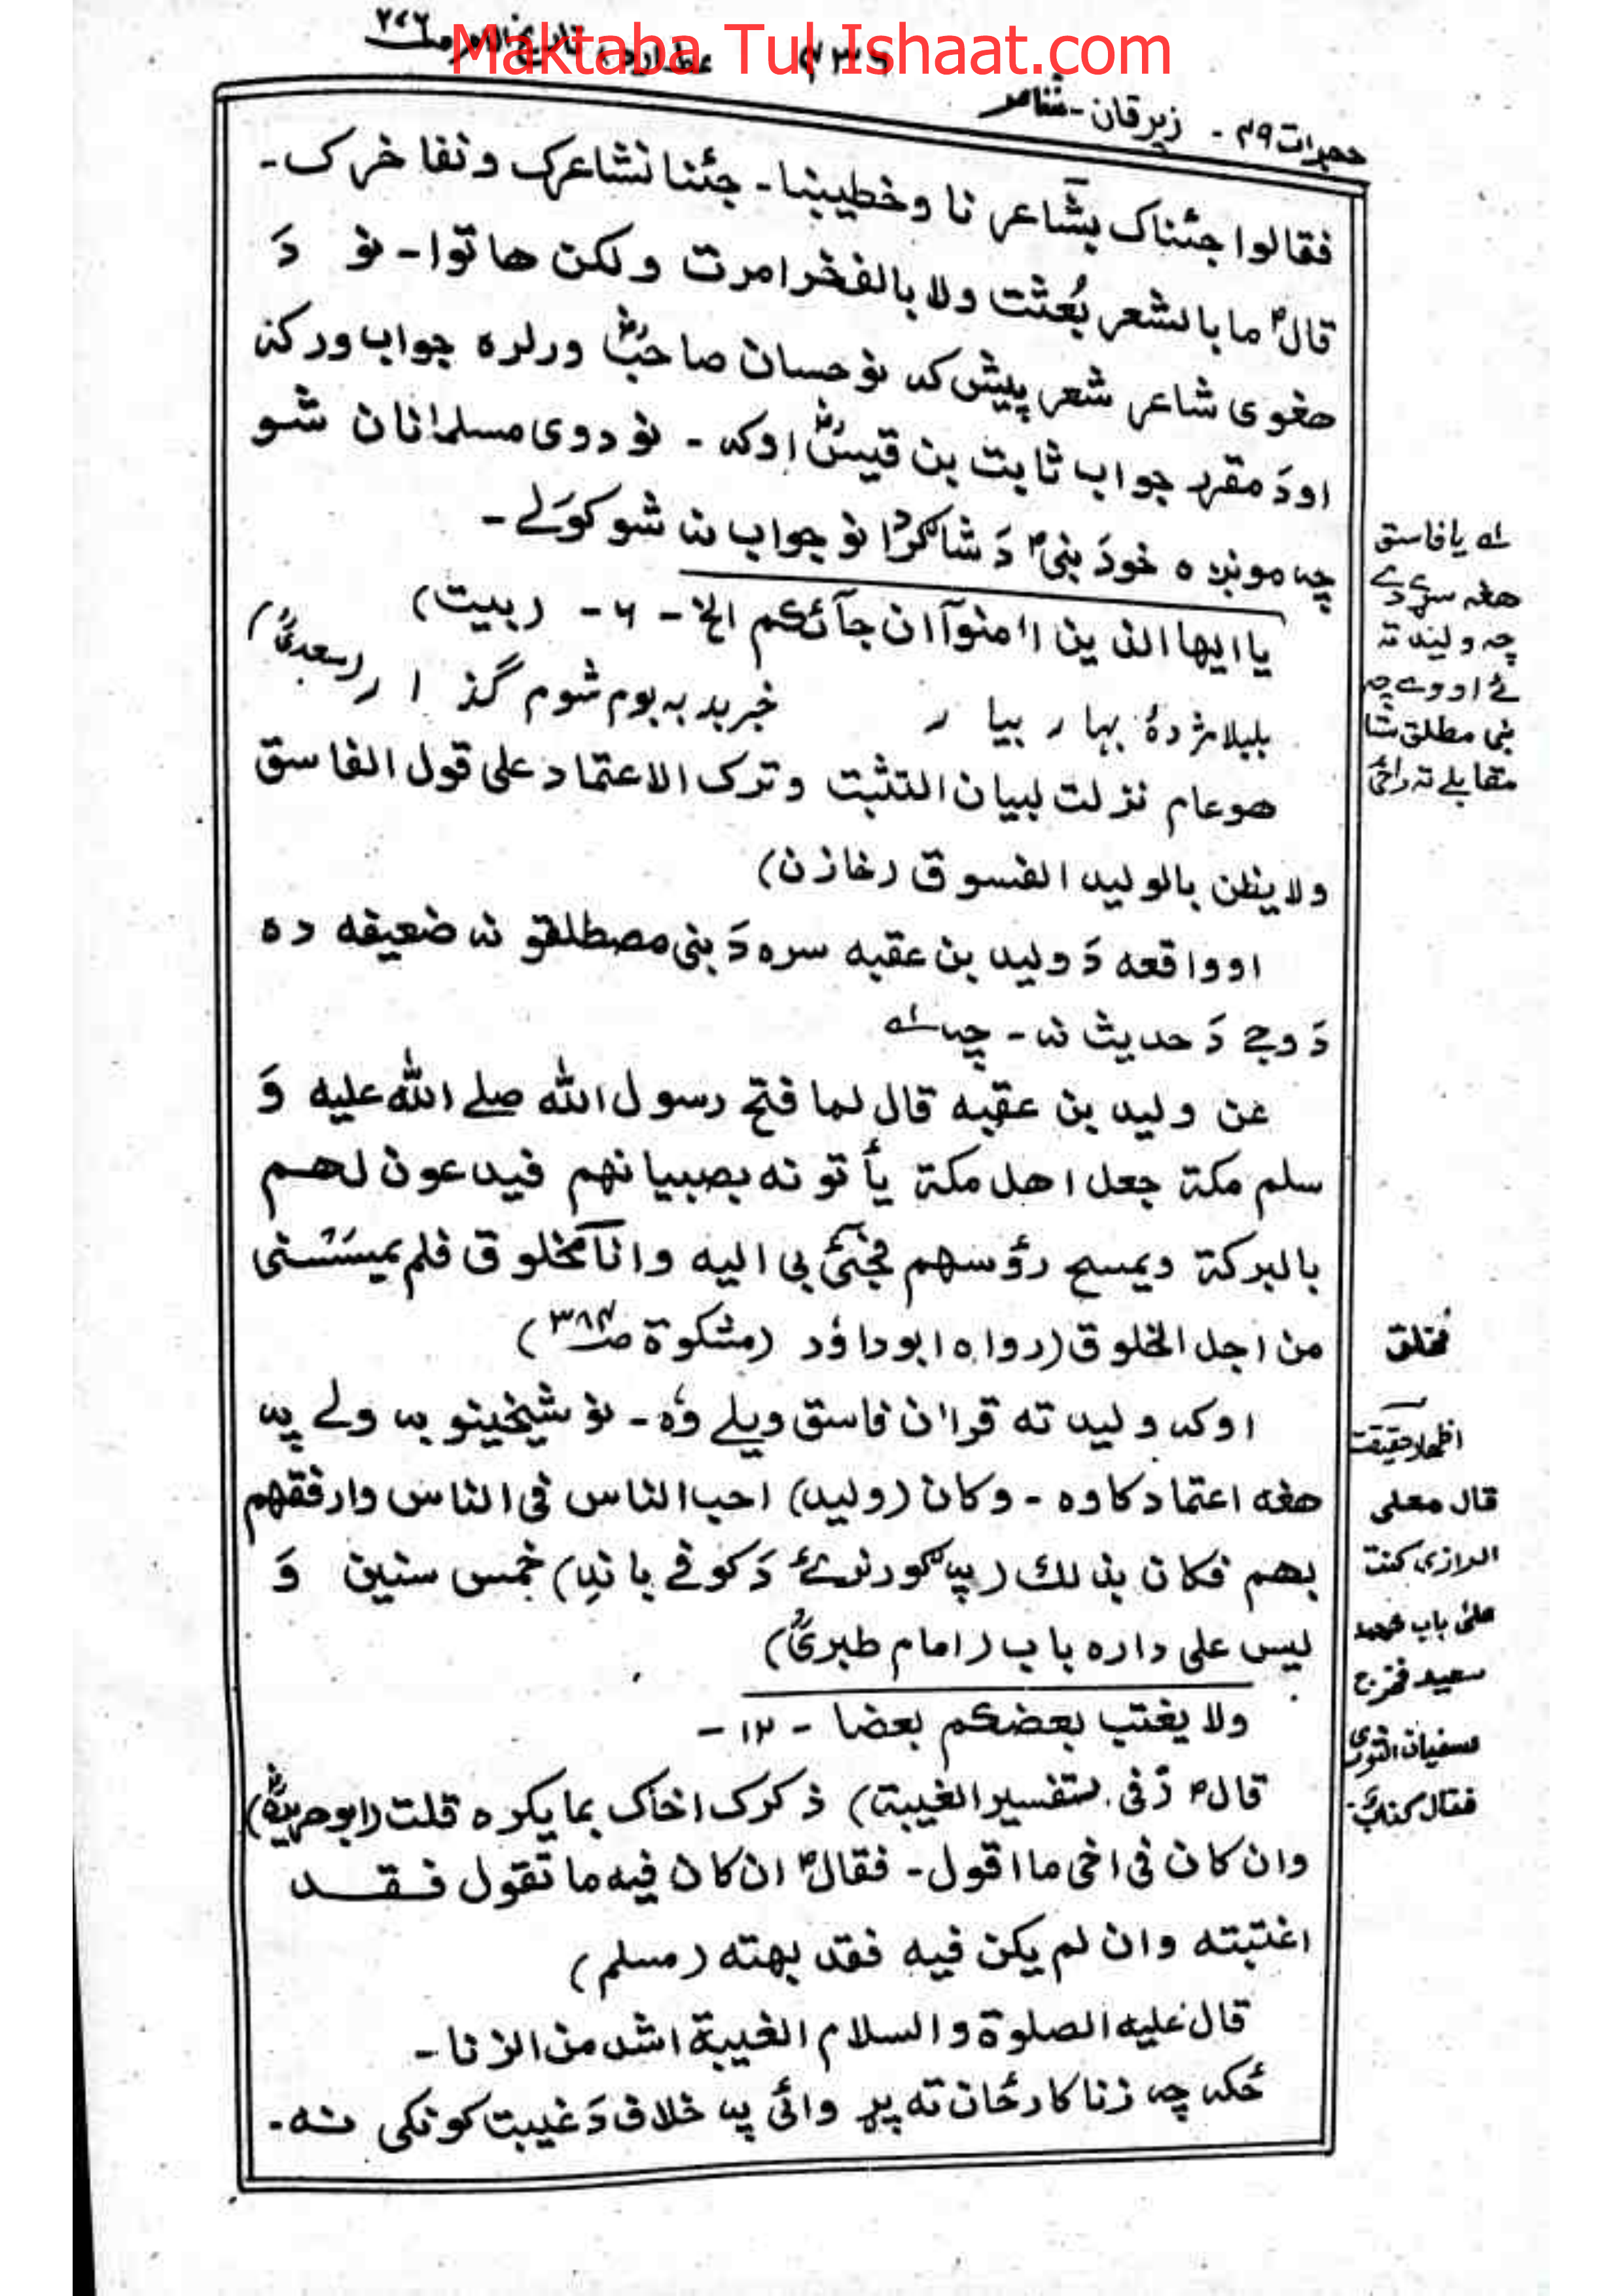 Maktaba Tul Ishaat.com
حجرات ۴۹ - زبرقان - شاعر
فقالوا جئناک بشاعر نا وخطیبنا - جئنا نشاعرک ونفا خرک -
قالؐ ما بالشعر بُعثت ولا بالفخر امرت ولکن هاتوا - نو دَ
هغوی شاعر شعر پیش کہ نو حسان صاحبؓ ورلره جواب ورکړ
او دَ مقرر جواب ثابت بن قیسؓ اوکہ - نو دوی مسلمانان شو
چہ مونږه خو دَ نبیؐ دَ شاګردا نو جواب نہ شو کوَلے -
یا ایها الذین اٰمنوآ ان جآئکم الخ - ۶ - (بیت)
بلبلا مژدۂ بہار بیار خبر بد بہ بوم شوم گذار (سعدیؒ)
هو عام نزلت لبیان التثبت وترک الاعتماد علی قول الفاسق
ولا یظن بالولید الفسوق (خازن)
او واقعه دَ ولید بن عقبه سره دَ بنی مصطلقو نہ ضعیفه ده
دَ وجے دَ حدیث نہ - چہ لے
عن ولید بن عقبه قال لما فتح رسول الله صلے الله علیه وَ
سلم مکة جعل اهل مکة یأتونه بصبیانهم فیدعون لهم
بالبرکة ویمسح رؤسهم فجئ بی الیه وانا مخلوق فلم یمسَسنی
من اجل الخلوق (رواه ابوداؤد (مشکوة صـ۳۸۴)
اوکہ ولید ته قراٰن فاسق ویلے وُه - نو شیخینو بہ ولے پہ
هغه اعتماد کاوه - وکان (ولید) احب الناس فی الناس وارفقهم
بهم فکان بذلك (پہ ګورنرۍ دَ کوفے باندِ) خمس سنین وَ
لیس علی داره باب (امام طبریؒ)
ولا یغتب بعضکم بعضا - ۱۲ -
قالؐ (فی تفسیر الغیبة) ذکرک اخاک بما یکره قلت (ابو هریرةؓ)
وان کان فی اخی ما اقول - فقالؐ ان کان فیه ما تقول فقد
اغتبته وان لم یکن فیه فقد بهته (مسلم)
قال علیه الصلوة والسلام الغیبة اشد من الزنا -
ځکہ چہ زنا کار ځان ته پړ وائی پہ خلاف دَ غیبت کونکی نہ -
لے یا فاسق
هغه سړے دے
چہ ولید تہ
ئے اووے چہ
بنی مطلق ستا
مقابلے تہ راځی
مُخلق
اظهار حقیقت
قال معلی
الرازی کنت
علی باب محمد
سعید فخرج
سفیان الثوری